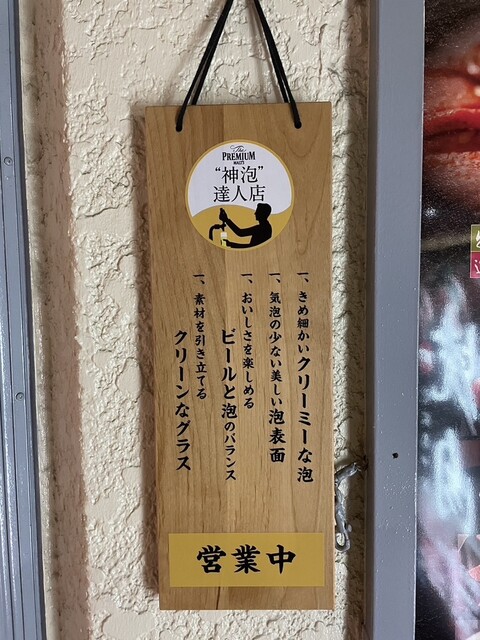 The
PREMIUM
MALT'S
“神泡”
達人店
一、きめ細かいクリーミーな泡
一、気泡の少ない美しい泡表面
一、おいしさを楽しめる
ビールと泡のバランス
一、素材を引き立てる
クリーンなグラス
営業中